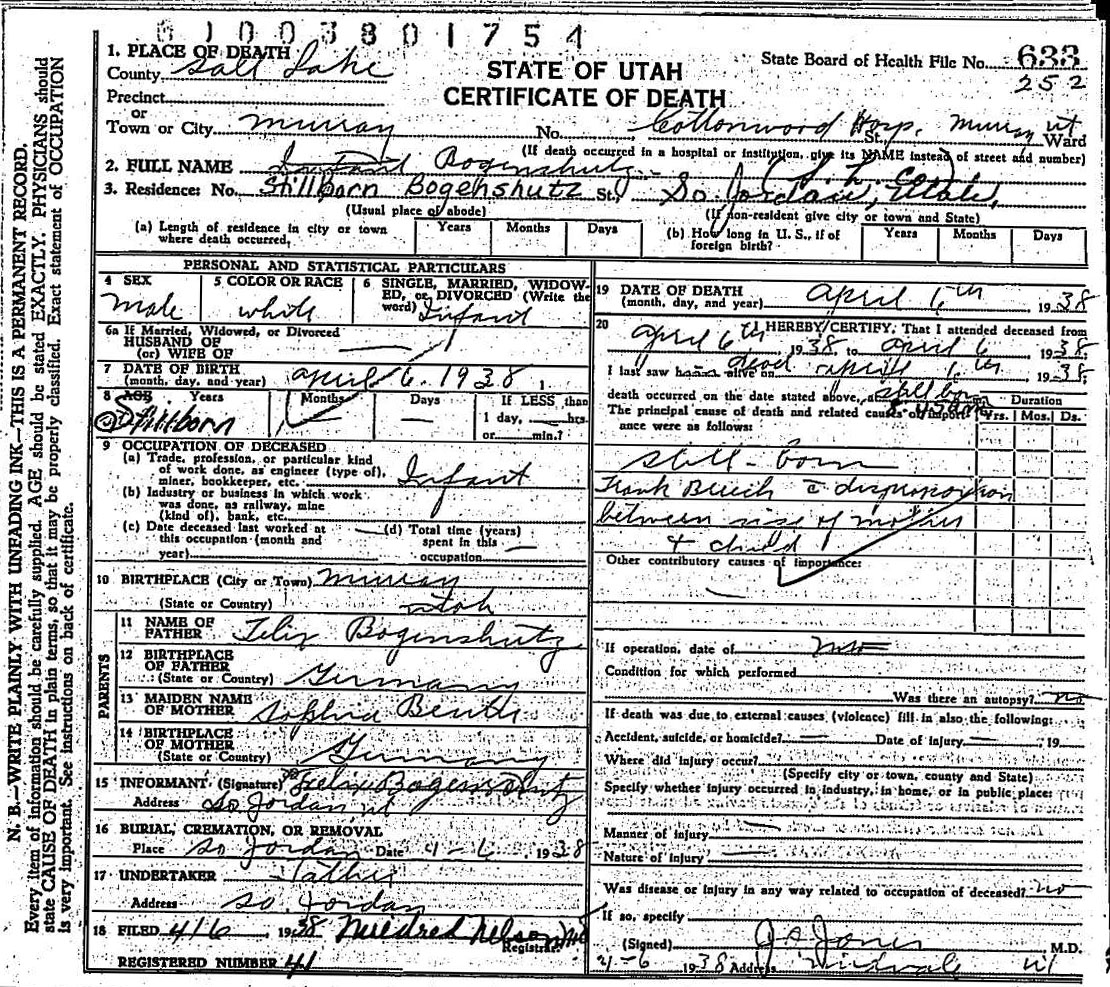 6 1 0 0 3 8 0 1 7 5 4
1. PLACE OF DEATH
County Salt Lake
STATE OF UTAH
CERTIFICATE OF DEATH
State Board of Health File No. 633
252
Precinct
or
Town or City Murray No. Cottonwood Hosp. Murray Ut St. Ward
(If death occurred in a hospital or institution, give its NAME instead of street and number)
2. FULL NAME Infant Bogenshutz
3. Residence: No. Stillborn Bogenshutz St. So. Jordan, Utah, (S. L. Co.)
(Usual place of abode) (If non-resident give city or town and State)
(a) Length of residence in city or town where death occurred, Years Months Days
(b) How long in U. S., if of foreign birth? Years Months Days
PERSONAL AND STATISTICAL PARTICULARS
4 SEX Male
5 COLOR OR RACE white
6 SINGLE, MARRIED, WIDOWED, or DIVORCED (Write the word) Infant
6a If Married, Widowed, or Divorced
HUSBAND OF
(or) WIFE OF
7 DATE OF BIRTH
(month, day, and year) April 6. 1938
8 AGE Years Months Days If LESS than
Stillborn 1 day, hrs.
or min.?
9 OCCUPATION OF DECEASED
(a) Trade, profession, or particular kind
of work done, as engineer (type of),
miner, bookkeeper, etc. Infant
(b) Industry or business in which work
was done, as railway, mine
(kind of), bank, etc.
(c) Date deceased last worked at
this occupation (month and
year)
(d) Total time (years)
spent in this
occupation
10 BIRTHPLACE (City or Town) Murray
(State or Country) Utah
PARENTS
11 NAME OF
FATHER Felix Bogenshutz
12 BIRTHPLACE
OF FATHER
(State or Country) Germany
13 MAIDEN NAME
OF MOTHER Sophia
14 BIRTHPLACE
OF MOTHER
(State or Country) Germany
15 INFORMANT (Signature) Felix Bogenschutz
Address So Jordan, Ut
16 BURIAL, CREMATION, OR REMOVAL
Place So Jordan Date 4-6 1938
17 UNDERTAKER Father
Address So. Jordan
18 FILED 4/6 1938 Mildred Nelson
Registrar
REGISTERED NUMBER 41
19 DATE OF DEATH
(month, day, and year) April 6th 1938
20 I HEREBY CERTIFY, That I attended deceased from
April 6th 1938, to April 6 1938.
I last saw h alive on dead April 6th 1938.
death occurred on the date stated above, at still born
The principal cause of death and related causes of importance were as follows:
Duration
Yrs. Mos. Ds.
still-born
Frank Breech c disproportion
between size of mother
& child
Other contributory causes of importance:
If operation, date of
Condition for which performed
Was there an autopsy? no
If death was due to external causes (violence) fill in also the following:
Accident, suicide, or homicide? Date of injury 19
Where did injury occur?
(Specify city or town, county and State)
Specify whether injury occurred in industry, in home, or in public place:
Manner of injury
Nature of injury
Was disease or injury in any way related to occupation of deceased? no
If so, specify
(Signed) J. S. Jones M.D.
4-6 1938 Address Midvale Ut
N. B.—WRITE PLAINLY WITH UNFADING INK—THIS IS A PERMANENT RECORD.
Every item of information should be carefully supplied. AGE should be stated EXACTLY. PHYSICIANS should
state CAUSE OF DEATH in plain terms, so that it may be properly classified. Exact statement of OCCUPATION
is very important. See instructions on back of certificate.